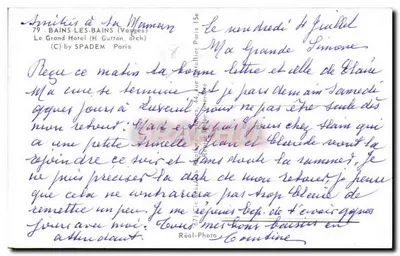 Amitiés à ta Maman
79 - BAINS-LES-BAINS (Vosges)
Le Grand Hôtel (H Gutton, arch)
(C) by SPADEM Paris
le vendredi 4 Juillet
Ma Grande Simone
Reçu ce matin ta bonne lettre et celle de Claire
Ma cure se termine et je pars demain Samedi
qques jours à Luxeuil pour ne pas être seule dès
mon retour. Max et sont chez Alain qui
a une petite Armelle et Claude vont la
rejoindre ce soir et sans doute la ramener. Je
ne puis préciser la date de mon retour, je pense
que cela ne contrariera pas trop Claire de
remettre un peu. Je me réjouis bcp. de t'avoir qques
jours avec moi. Tous mes bons baisers en
attendant.
Réal-Photo